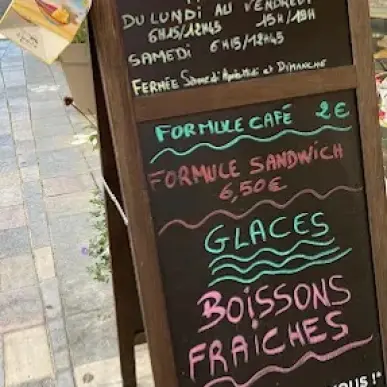 DU LUNDI AU VENDREDI
6H15/12H45 15H/19H
SAMEDI 6H15/12H45
FERMÉE Samedi Après Midi et DIMANCHE
FORMULE CAFÉ 2€
FORMULE SANDWICH
6,50€
GLACES
BOISSONS
FRAICHES
VOUS !*